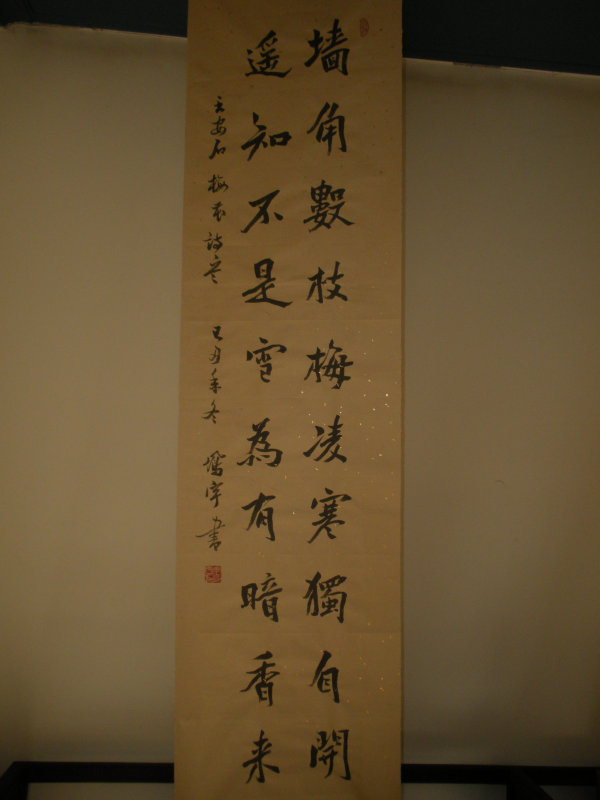 墙角數枝梅凌寒獨自開
遥知不是雪為有暗香来
王安石 梅花詩意 己丑年冬 宇書